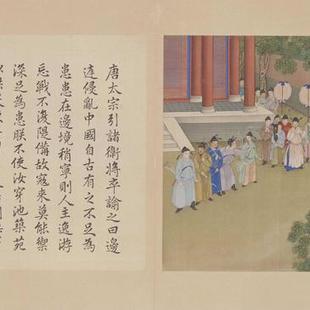 唐太宗引諸衛將卒諭之曰邊
侵亂中國自古有之不足為
患患在邊境稍寧則人主逸游
忘戰不復隄備故寇來莫能禦
深足為患朕不使汝穿池築苑